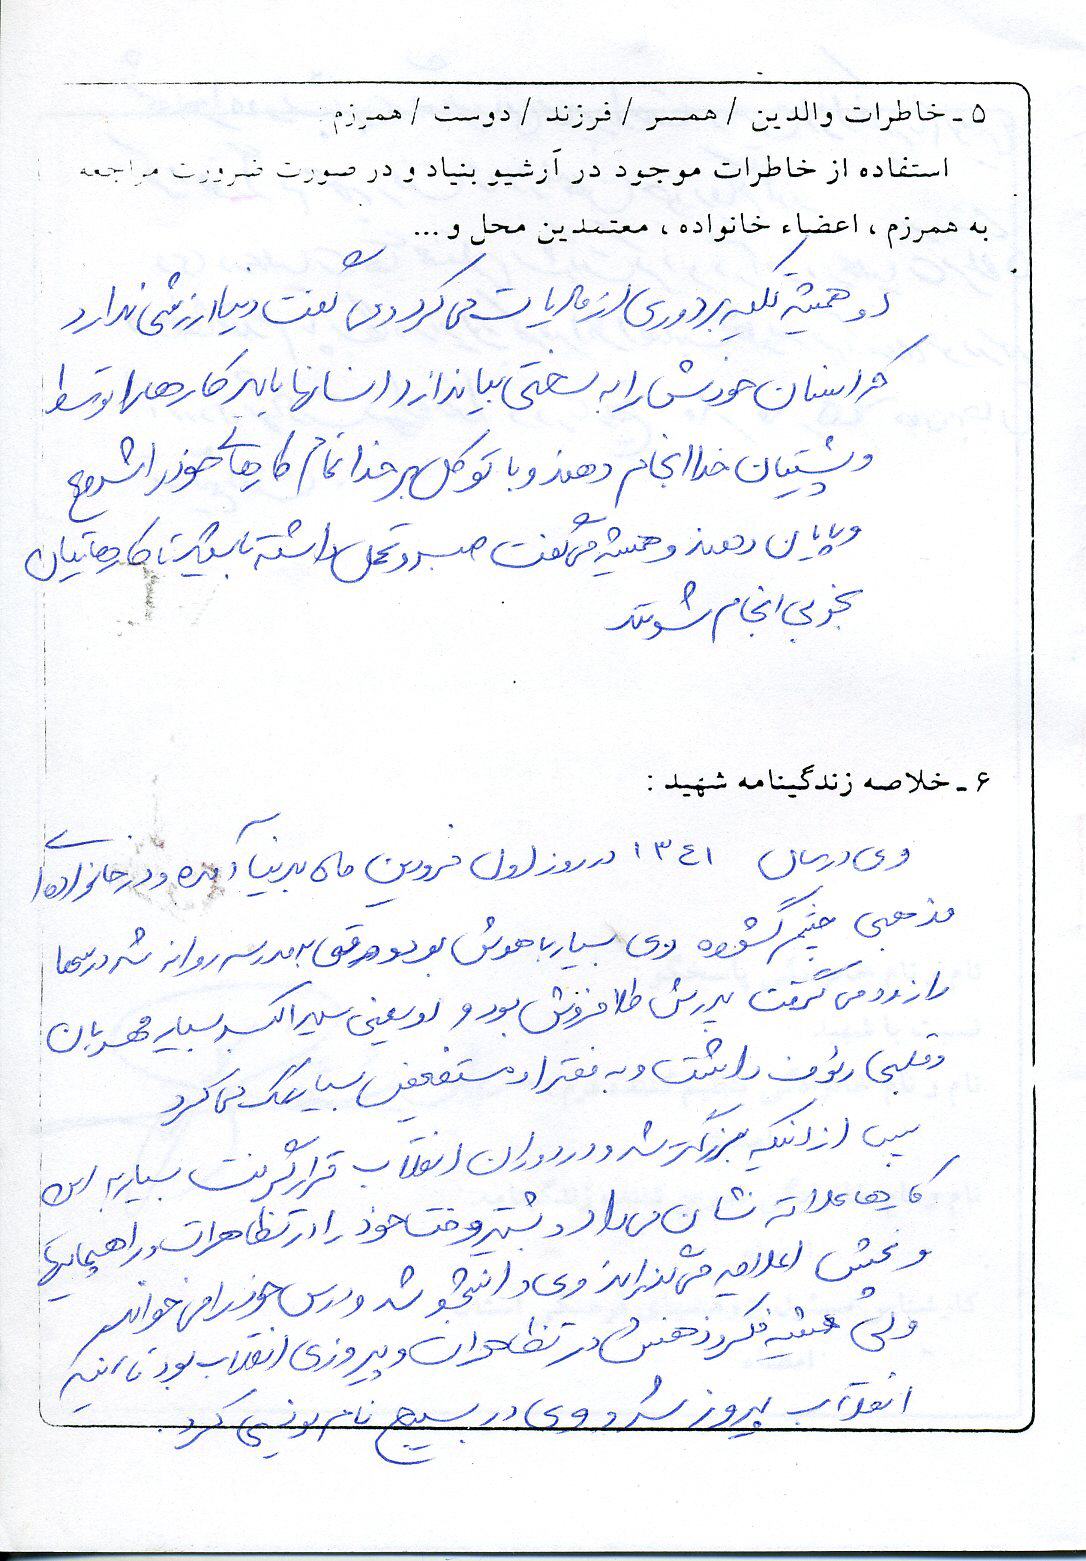 ۵ ـ خاطرات والدین / همسر / فرزند / دوست / همرزم:
استفاده از خاطرات موجود در آرشیو بنیاد و در صورت ضرورت مراجعه
به همرزم ، اعضاء خانواده ، معتمدین محل و ...
او همیشه تکیه بر دوری از مادیات می کرد و می گفت دنیا ارزشی ندارد
که انسان خودش را به سختی بیاندازد انسانها باید کارها را توسط
و پشتیبان خدا انجام دهند و با توکل بر خدا تمام کارهای خود را شروع
و پایان دهند و همیشه می گفت صبر و تحمل داشته باشید تا کارهایتان
بخوبی انجام شوند
۶ ـ خلاصه زندگینامه شهید :
وی در سال ۱۳۴۱ در روز اول فروردین ماه بدنیا آمده و در خانواده ای
مذهبی چشم گشوده وی بسیار با هوش بود و وقتی به مدرسه روانه شد درسها
را زود می گرفت پدرش طلا فروش بود و او یعنی بسیار مهربان
و قلبی رئوف داشت و به فقرا و مستضعفین بسیار کمک می کرد
پس از اینکه بزرگتر شد و در دوران انقلاب قرار گرفت بسیار به این
کارها علاقه نشان می داد و بیشتر وقت خود را در تظاهرات و راهپیماییها
و پخش اعلامیه می گذراند وی دانشجو شد و درس خود را می خواند
ولی همیشه فکر و ذهنش در تظاهرات و پیروزی انقلاب بود تا اینکه
انقلاب پیروز شد و وی در بسیج نام نویسی کرد.